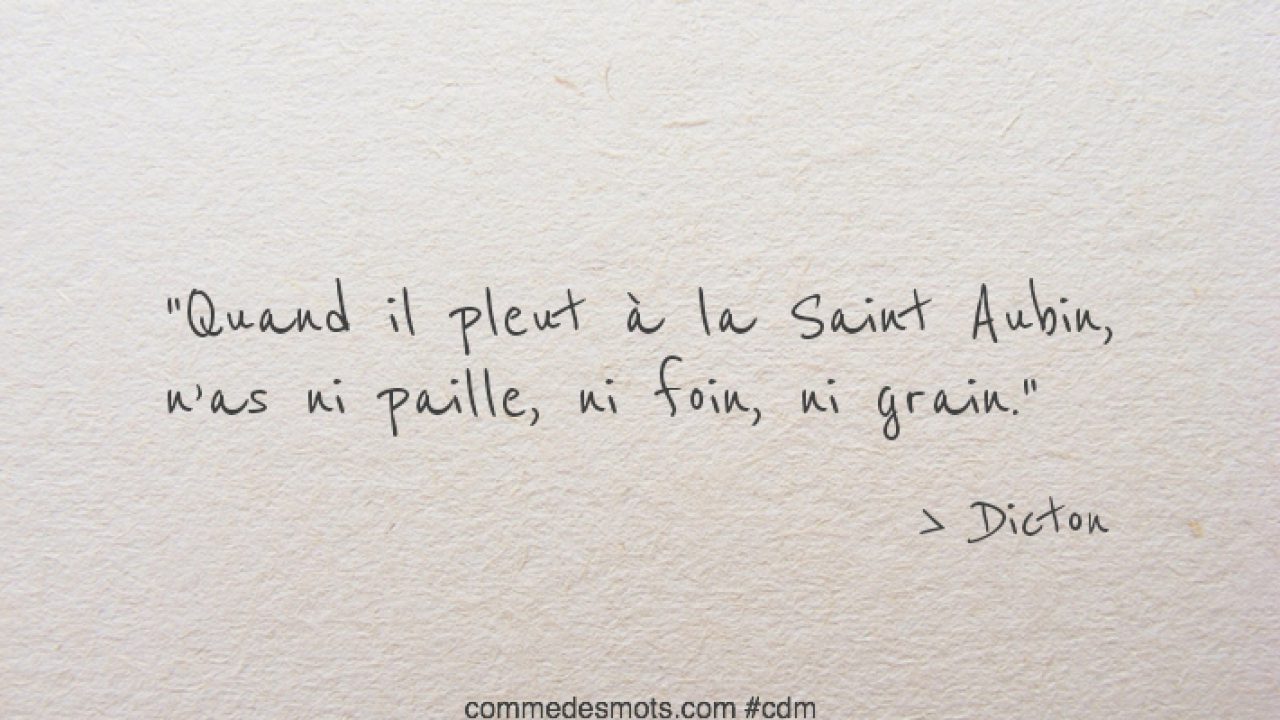 "Quand il pleut à la Saint Aubin,
n'as ni paille, ni foin, ni grain."
> Dicton
commedesmots.com #cdm